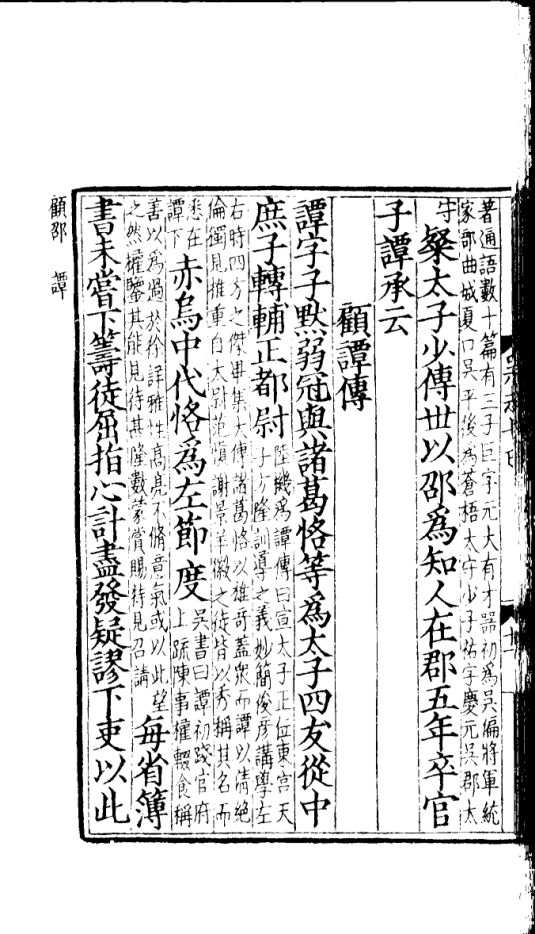 著通語數十篇有三子巨字元大有才器初為吳偏將軍統
家部曲城夏口吳平後為蒼梧太守少子祐字慶元吳郡太
守
粲太子少傅丗以邵爲知人在郡五年卒官
子譚承云
顧譚傳
譚字子默弱冠與諸葛恪等爲太子四友從中
庶子轉輔正都尉
陸機為譚傳曰宣太子正位東宮天
子方隆訓導之義妙簡俊彦講學左
右時四方之傑畢集太傅諸葛恪以雄奇蓋衆而譚以清絕
倫獨見推重自太尉范慎謝景羊徽之徒皆以秀稱其名而
悉在
譚下
赤烏中代恪爲左節度
吳書曰譚初踐官府
上疏陳事權輟食稱
善以為過於徐詳雅性高亮不脩意氣或以此望
之然權鑒其能見待甚隆數蒙賞賜特見召請
每省簿
書未嘗下籌徒屈指心計盡發疑謬下吏以此
顧邵 譚